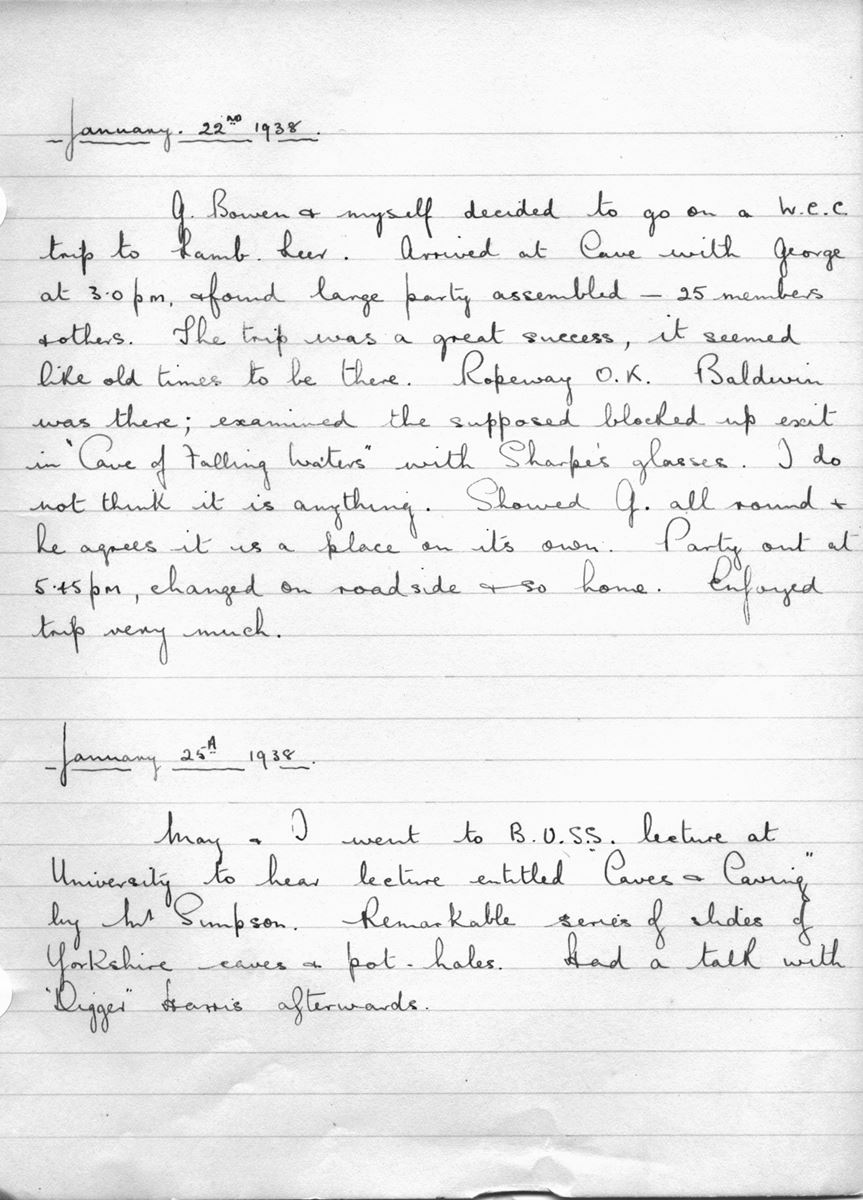 January. 22ND 1938.
G. Bowen & myself decided to go on a W.C.C.
trip to Lamb. Leer. Arrived at Cave with George
at 3.0 pm, & found large party assembled — 25 members
& others. The trip was a great success, it seemed
like old times to be there. Ropeway O.K. Baldwin
was there; examined the supposed blocked up exit
in "Cave of Falling Waters" with Sharpe's glasses. I do
not think it is anything. Showed G. all round &
he agrees it is a place on its own. Party out at
5.45 pm, changed on roadside & so home. Enjoyed
trip very much.
January 25th 1938.
May & I went to B.U.S.S. lecture at
University to hear lecture entitled "Caves & Caving"
by Mr Simpson. Remarkable series of slides of
Yorkshire caves & pot-holes. Had a talk with
"Digger" Harris afterwards.